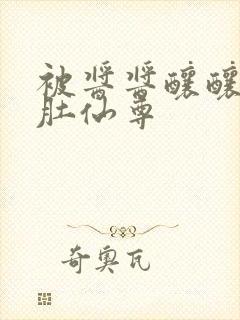 被酱酱酿酿
肚仙尊
奇奥瓦